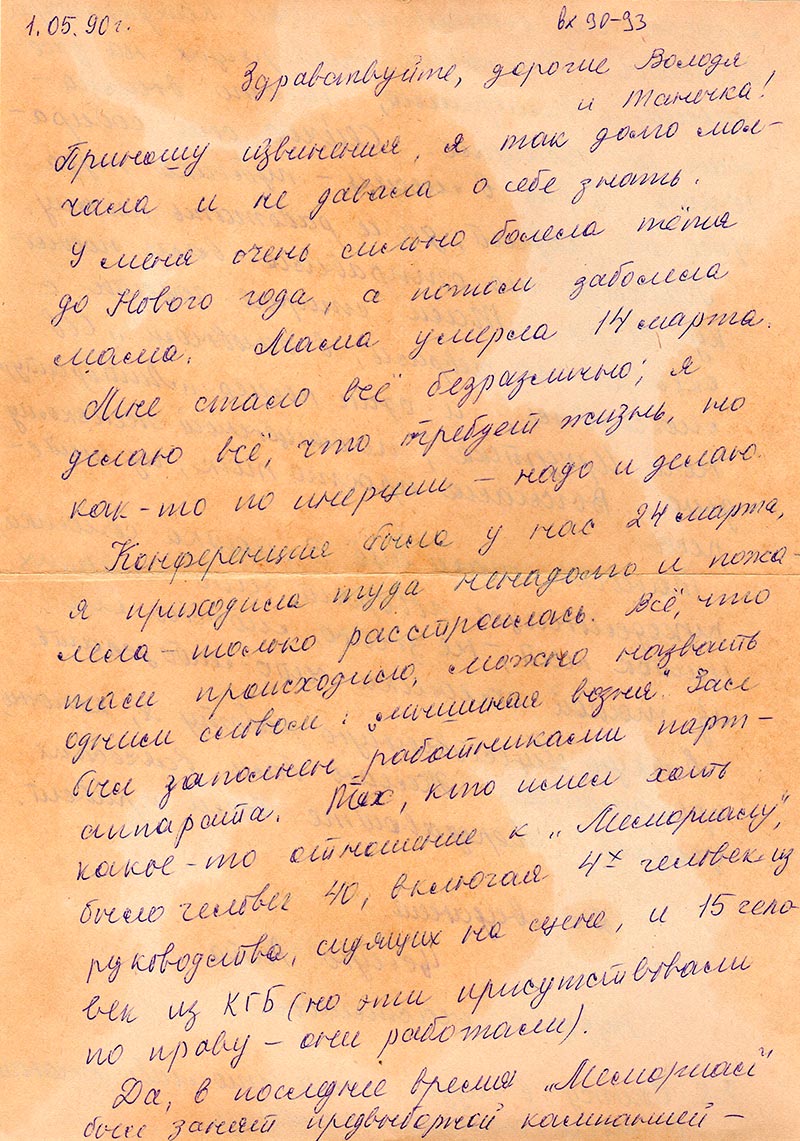 1.05.90г.
вх 90-93
Здравствуйте, дорогие Володя
и Танечка!
Приношу извинения, я так долго мол-
чала и не давала о себе знать.
У меня очень сильно болела тётя
до Нового года, а потом заболела
мама. Мама умерла 14 марта.
Мне стало всё безразлично; я
делаю всё, что требует жизнь, но
как-то по инерции – надо и делаю.
Конференция была у нас 24 марта,
я приходила туда ненадолго и пожа-
лела – только расстроилась. Всё, что
там происходило, можно назвать
одним словом: „мышиная возня". Зал
был заполнен работниками парт-
аппарата. Тех, кто имел хоть
какое-то отношение к „Мемориалу",
было человек 40, включая 4х человек из
руководства, сидящих на сцене, и 15 чело
век из КГБ (но эти присутствовали
по праву – они работали).
Да, в последнее время „Мемориал"
был занят предвыборной кампанией –